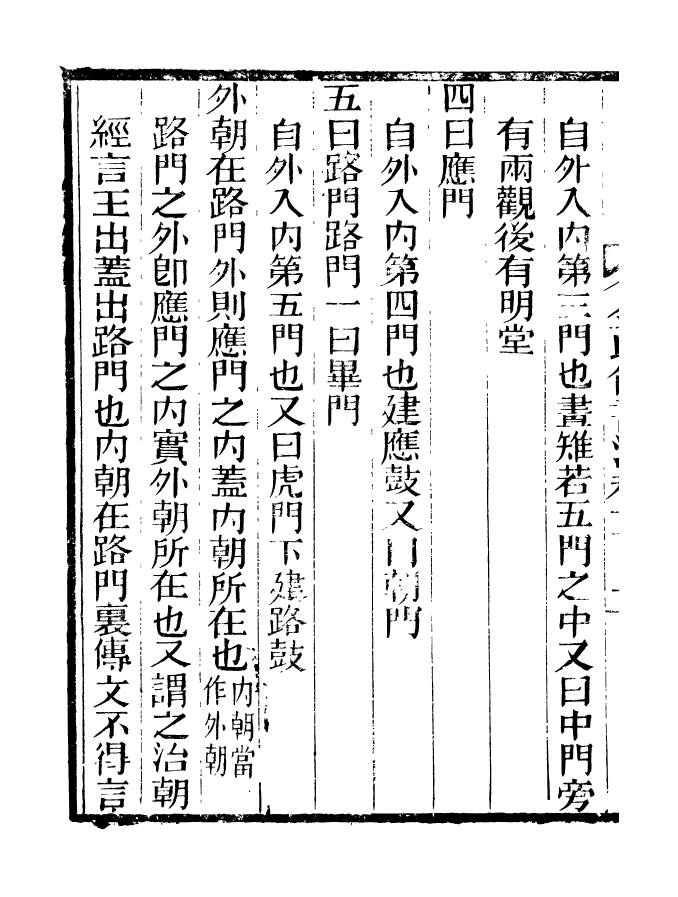 自外入内第三門也畫雉若五門之中又曰中門旁
有兩觀後有明堂
四曰應門
自外入内第四門也建應鼓又曰朝門
五曰路門路門一曰畢門
自外入内第五門也又曰虎門下建路鼓
外朝在路門外則應門之内蓋内朝所在也内朝當作外朝
路門之外卽應門之内實外朝所在也又謂之治朝
經言王出蓋出路門也内朝在路門裏傳文不得言